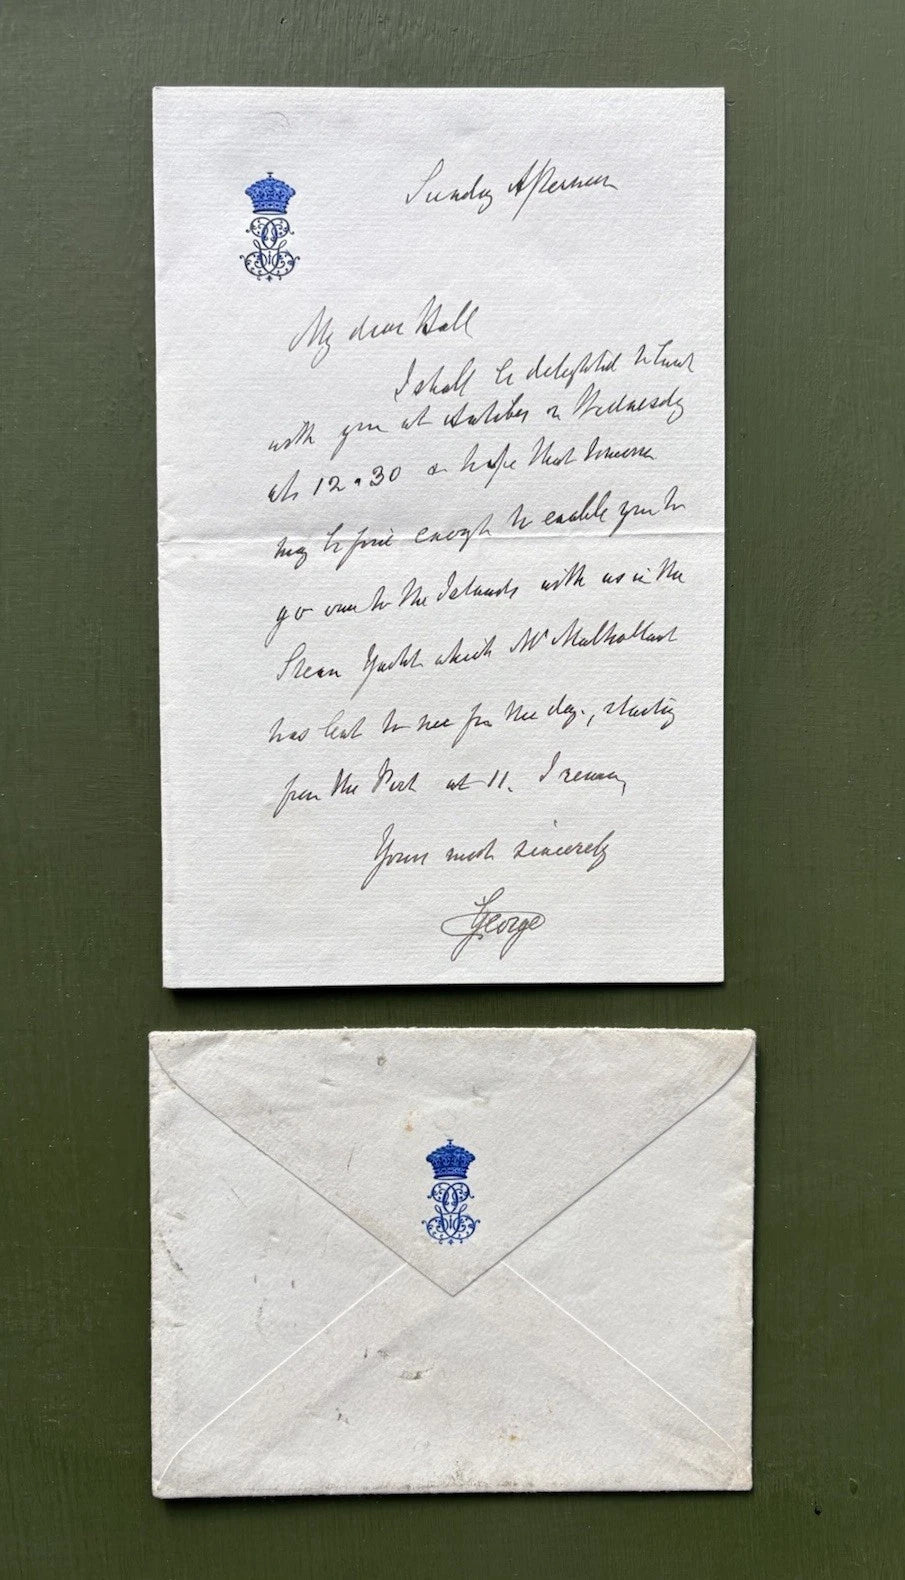 Sunday Afternoon
My dear Hall
I shall be delighted to lunch
with you at Antibes on Wednesday
at 12.30 & hope that tomorrow
may be fine enough to enable you to
go over to the Islands with us in the
Steam Yacht which Mr Mulholland
has lent to me for the day, starting
from the Port at 11. I remain
Yours most sincerely
George